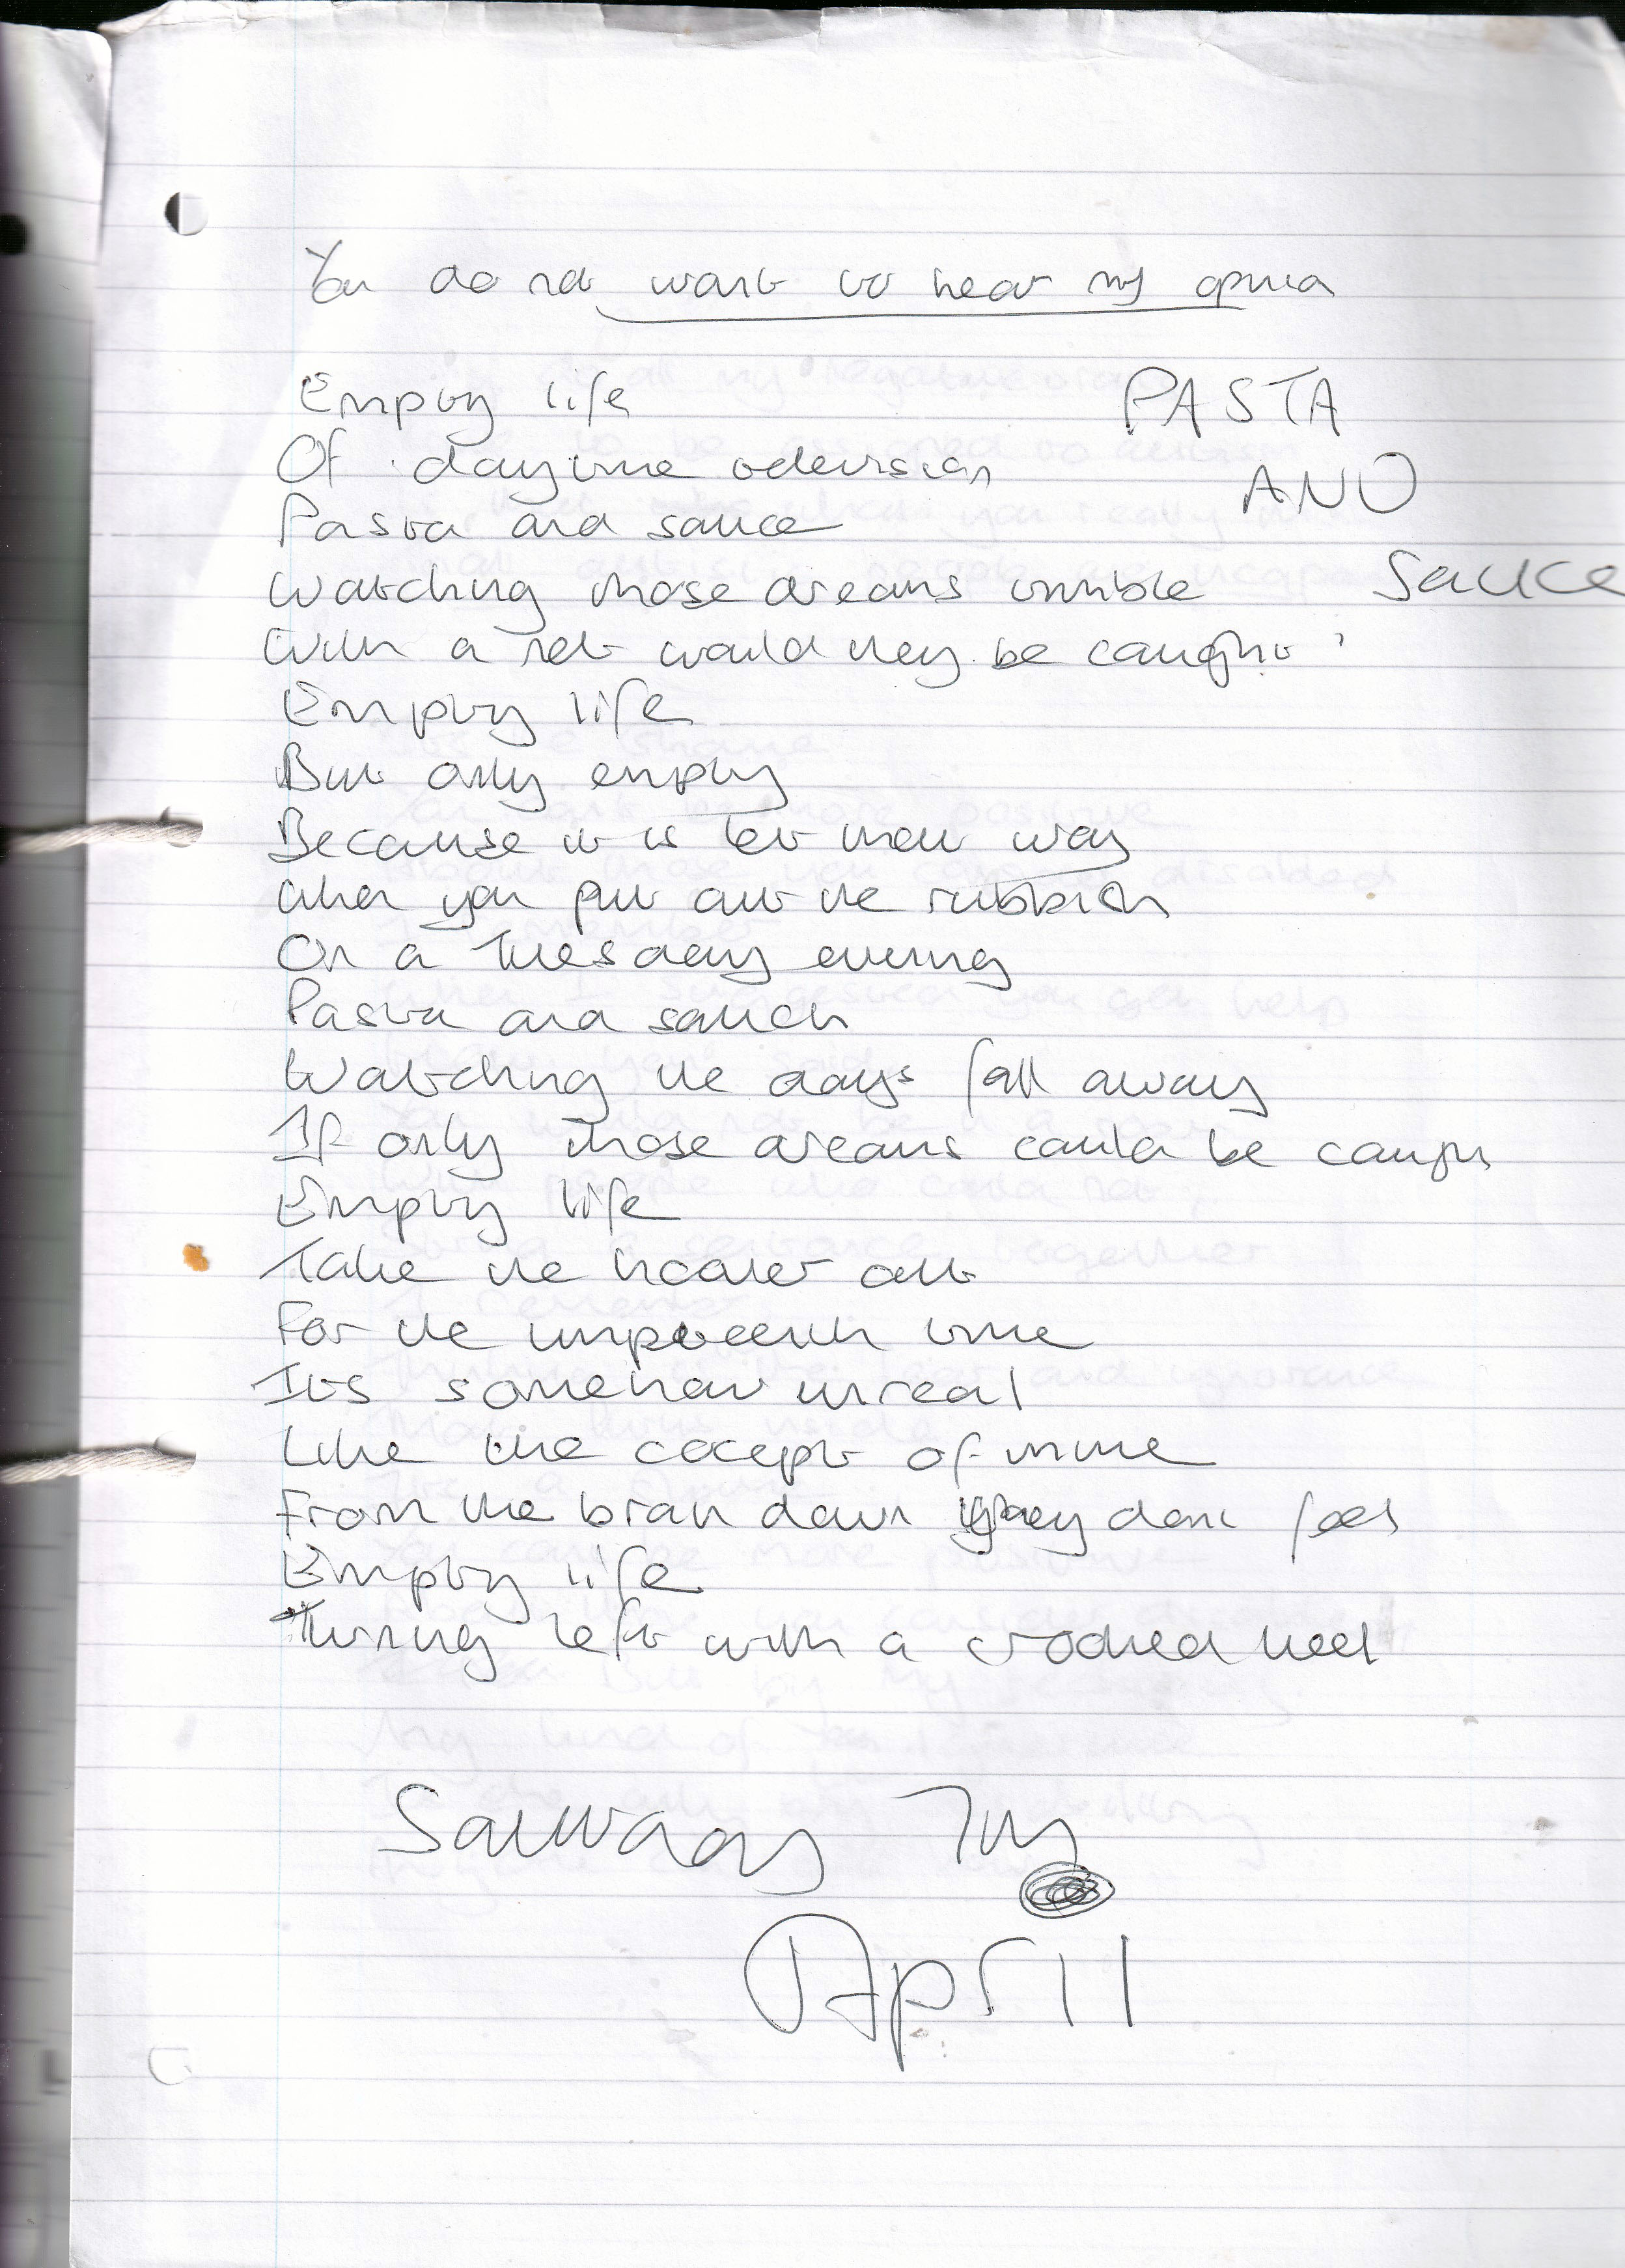 You do not want to hear my opinion
Empty life
PASTA
Of daytime television
AND
Pasta and sauce
Watching those dreams tumble
Sauce
With a net would they be caught
Empty life
But only empty
Because it is let that way
When you put out the rubbish
On a Tuesday evening
Pasta and sauce
Watching the days fall away
If only those dreams could be caught
Empty life
Take the hoover out
For the umpteenth time
Its somehow unreal
Like the concept of time
From the brain down they dont feel
Empty life
Turning left with a crooked heel
Saturday
April